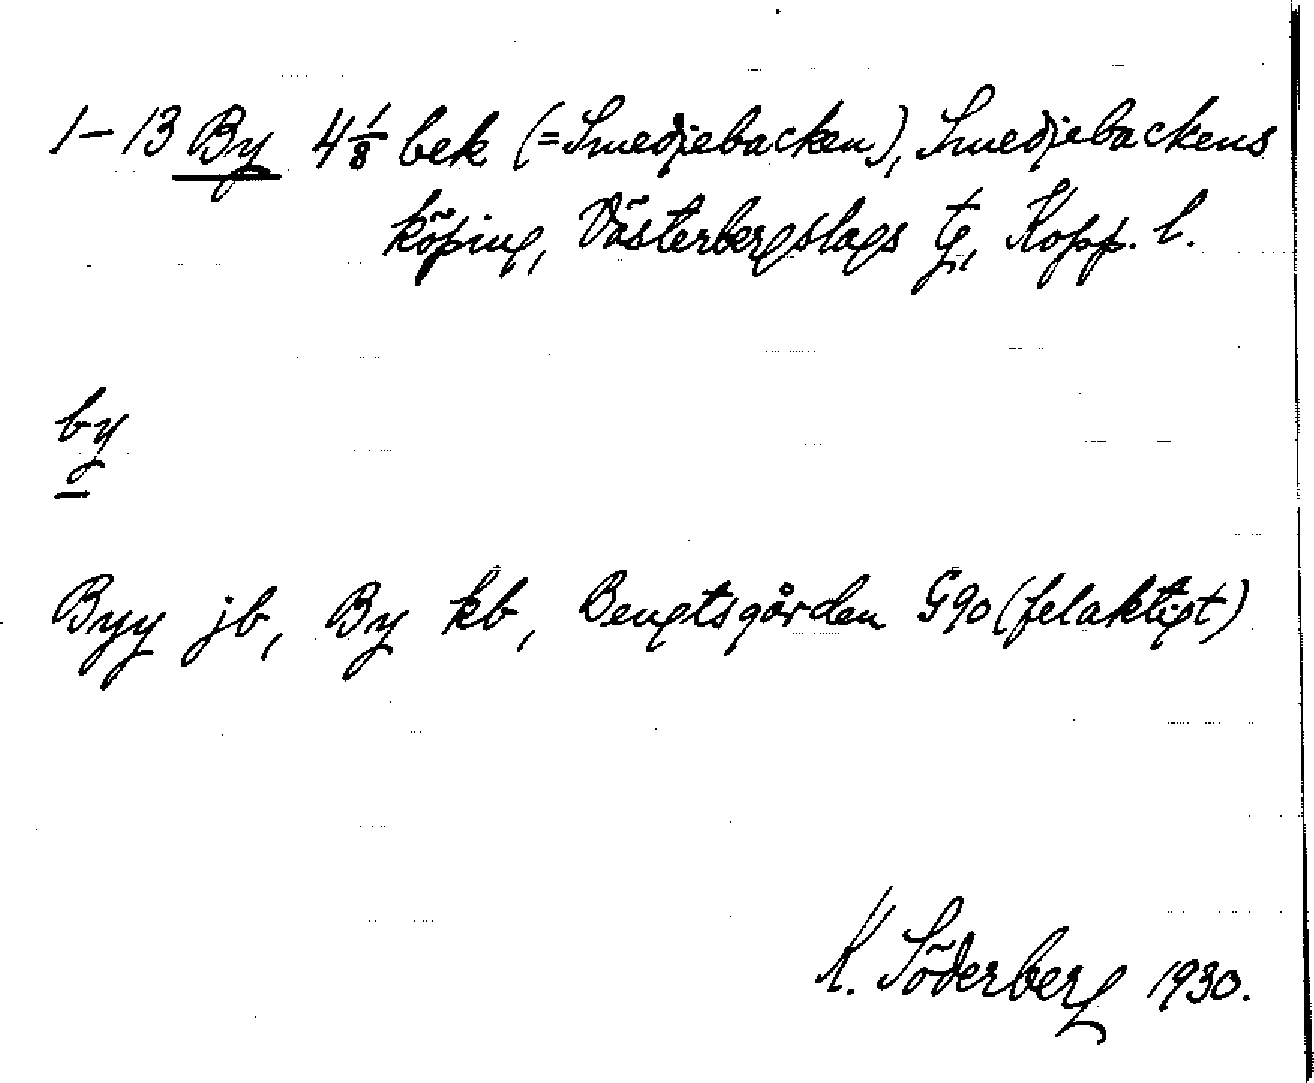 1-13 By 4 1/8 bek (=Smedjebacken), Smedjebackens
köping, Västerbergslags tg, Kopp. l.
by
Byy jb, By kb, Bengtsgården G90 (felaktigt)
K. Söderberg 1930.